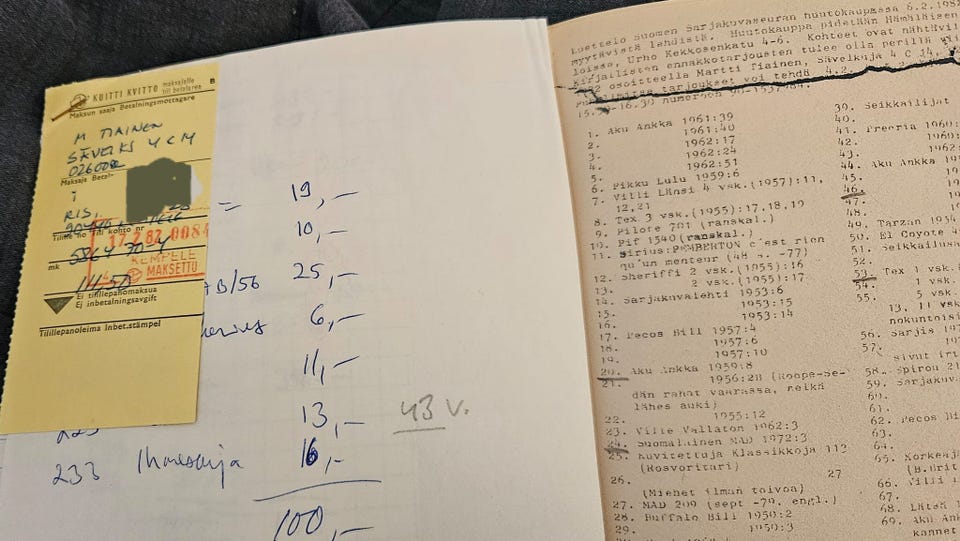 KUITTI KVITTO
maksajalle
till betalaren
B
Maksun saaja Betalningsmottagare
M TIAINEN
SÄVELKJ 4 C 14
Maksaja
Tilille no Till konto nr
17.2.82 0084
KEMPELE
MAKSETTU
mk
Ei tilillepanomaksua
Ej inbetalningsavgift
Tilillepanoleima Inbet.stämpel
= 19,-
10,-
25,-
6,-
11,-
13,-
43 v.
233 16,-
100,-
Luettelo Suomen Sarjakuvaseuran huutokaupassa 6.2.198
myytävistä lehdistä. Huutokauppa pidetään Hämäläisen
loissa, Urho Kekkosenkatu 4-6. Kohteet ovat nähtävil
Kirjallisten ennakkotarjousten tulee olla perillä
osoitteella Martti Tiainen, Sävelkuja 4 C 14,
tarjoukset voi tehdä 4.2.
1. Aku Ankka 1961:39
2. 1961:40
3. 1962:17
4. 1962:24
5. 1962:51
6. Pikku Lulu 1959:6
7. Villi Länsi 4 vsk.(1957):11,
12,21
8. Tex 3 vsk.(1955):17,18,19
9. Pilote 701 (ranskal.)
10. Pif 1340 (ranskal.)
11. Sirius:PEMBERTON c'est rien
qu'un menteur (48 s. -77)
12. Sheriffi 2 vsk.(1955):16
13. 2 vsk.(1955):17
14. Sarjakuvalehti 1953:6
15. 1953:15
16. 1953:14
17. Pecos Bill 1957:4
18. 1957:6
19. 1957:10
20. Aku Ankka 1959:8
21. 1956:2B (Roope-Se-
dän rahat vaarassa, melkä
lähes auki)
22. 1955:12
23. Ville Vallaton 1962:3
24. Suomalainen MAD 1972:3
25. Kuvitettuja Klassikkoja 112
(Rosvoritari)
26. 27
(Miehet ilman toivoa)
27. MAD 209 (sept -79, engl.)
28. Buffalo Bill 1950:2
29. 1950:3
39. Seikkailijat
40.
41. Preeria 1960:
42. 1960:
43. 1962:
44. Aku Ankka
45.
46.
47.
48.
49. Tarzan
50. El Coyote
51. Seikkailus
52.
53. Tex 1 vsk.
54. 1 vsk.
55. 5 vsk.
13, 11 vsk
nokuntoisi
56. Sarjis
57.
sivut irt
58. Spirou
59. Sarjakuva
60.
61.
62. Pecos Bi
63.
64.
65. Korkeaj
(B.Brit
66. Villi
67.
68. Lätsä
69. Aku An
kannet